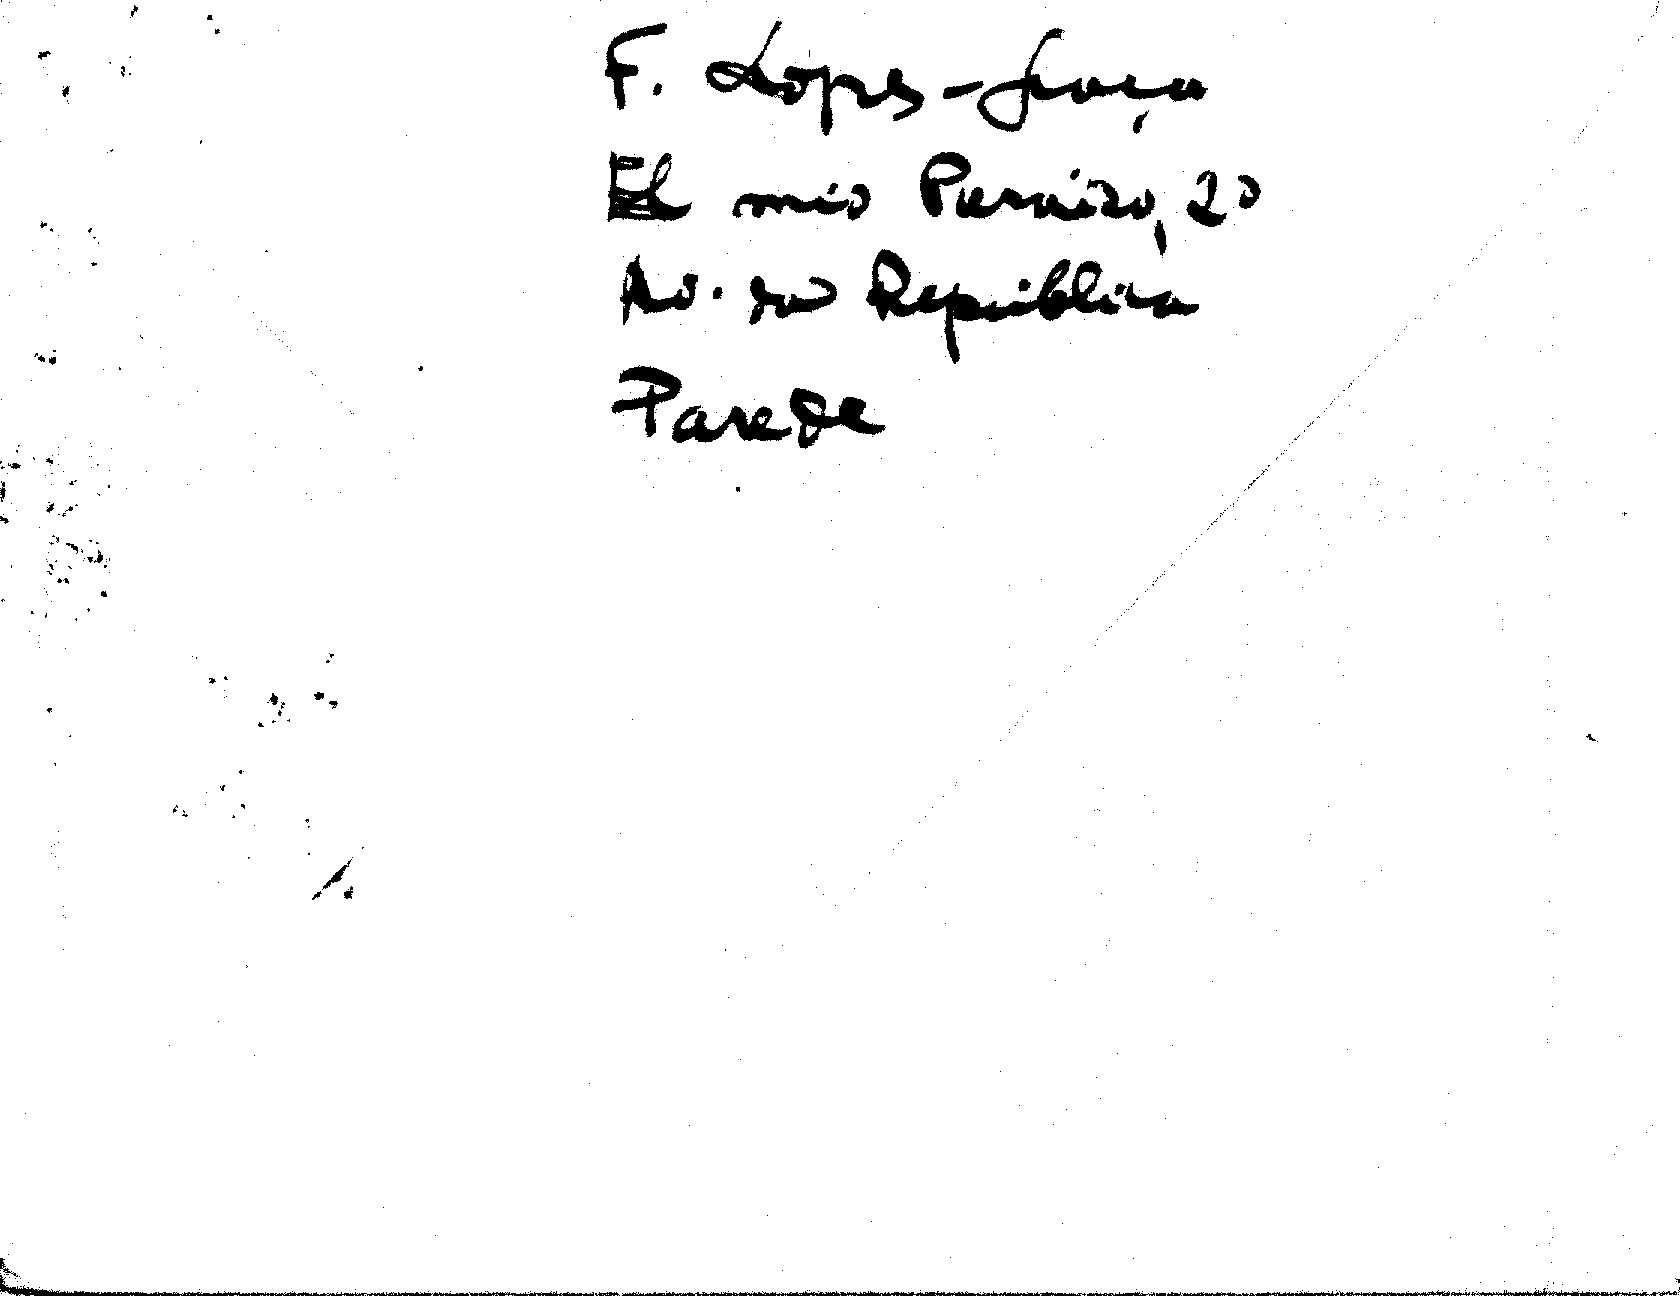 F. Lopes-Graça
El mio Paraizo, 2º
Av. da República
Parede